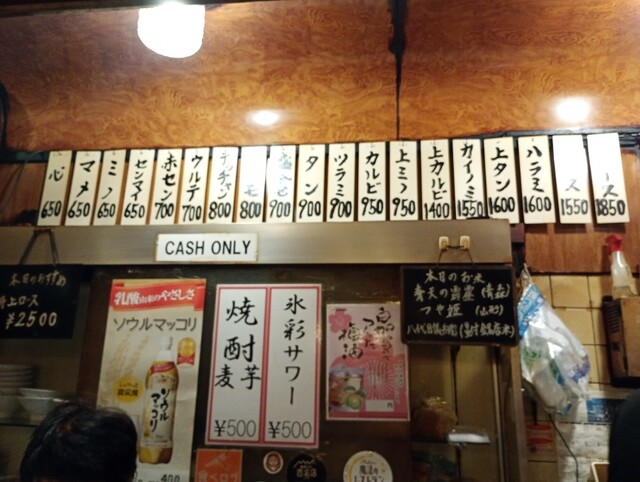 心 650
マメ 650
ミノ 650
センマイ 650
赤セン 700
ウルテ 700
テッチャン 800
800
900
タン 900
ツラミ 900
カルビ 950
上ミノ 950
上カルビ 1400
カイノミ 1550
上タン 1600
ハラミ 1600
ス 1550
ース 1850
CASH ONLY
本日のおすすめ
上ロース
¥2500
乳酸
のやさしさ
ソウルマッコリ
ソウル
マッコリ
400
焼酎
麦
芋
¥500
氷彩サワー
¥500
梅酒
本日のお米
青天の霹靂 (青森)
つや姫 (山形)
食べログ
魔法の
レストラン